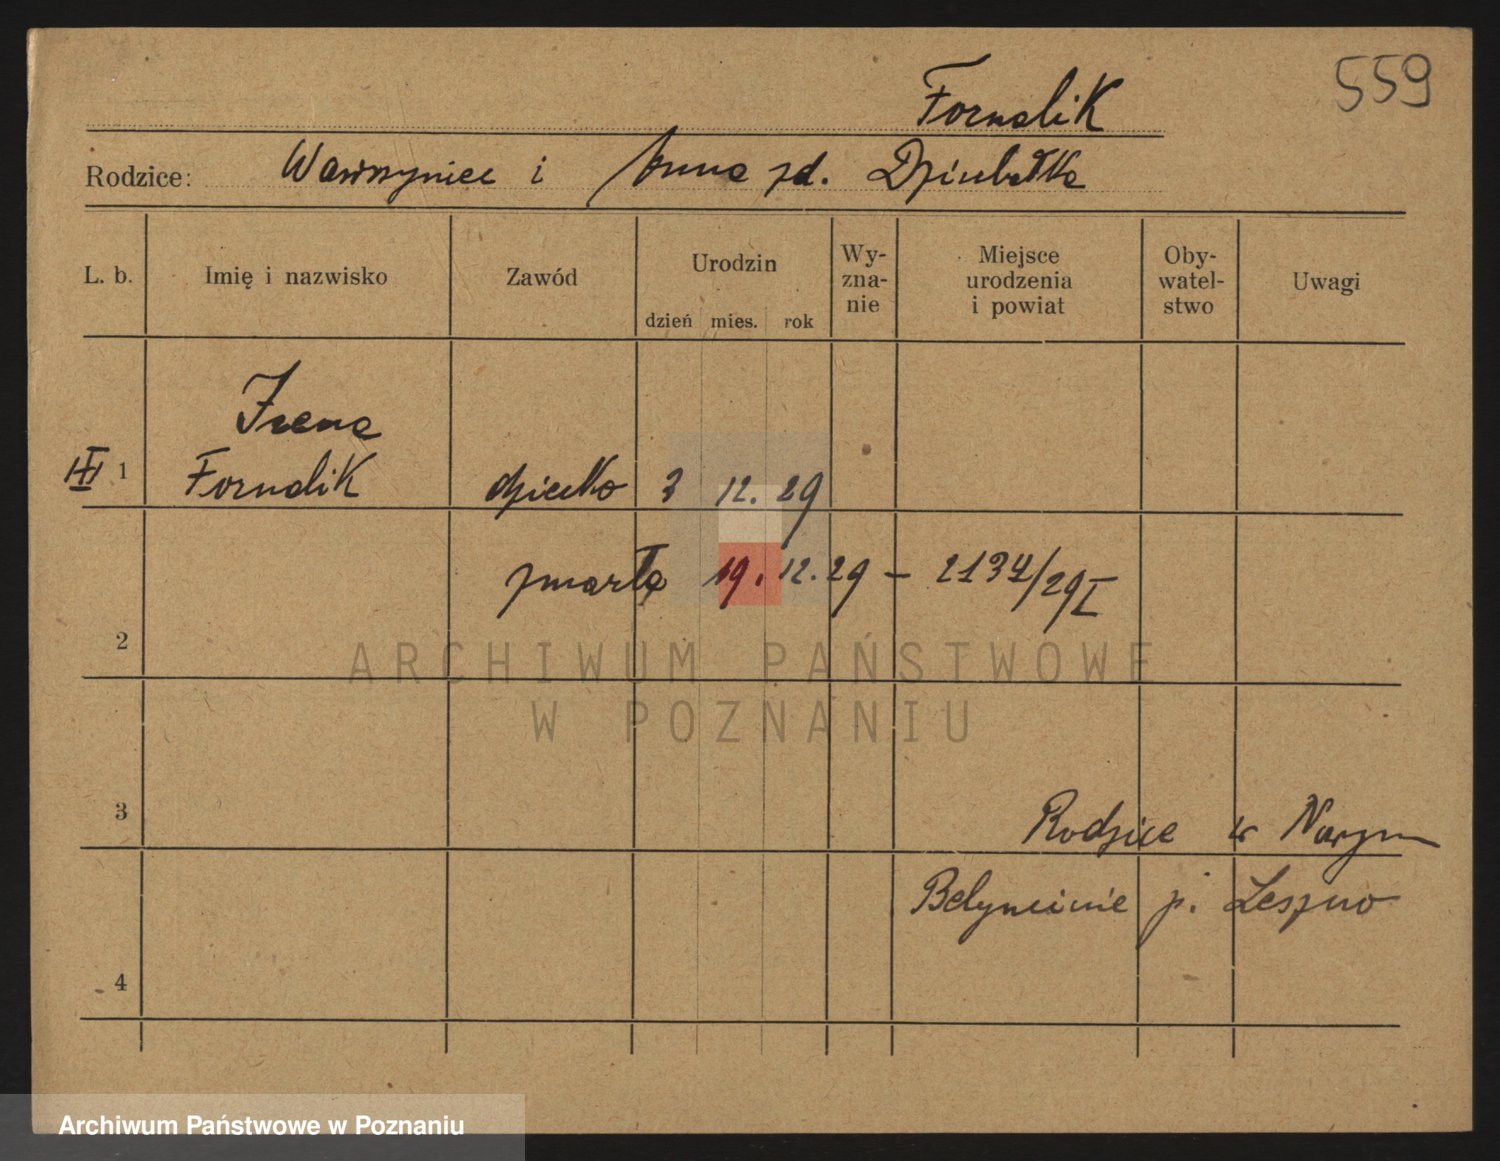 559
Fornalik
Rodzice: Wawrzyniec i Anna zd. Dziubałka
L. b. Imię i nazwisko Zawód Urodzin dzień mies. rok Wy-zna-nie Miejsce urodzenia i powiat Oby-watel-stwo Uwagi
Irena
III 1 Fornalik dziecko 3 12. 29
zmarła 19. 12. 29 – 2134/29 I
2
ARCHIWUM PAŃSTWOWE
W POZNANIU
3 Rodzice w Nowym
Belęcinie p. Leszno
4
Archiwum Państwowe w Poznaniu